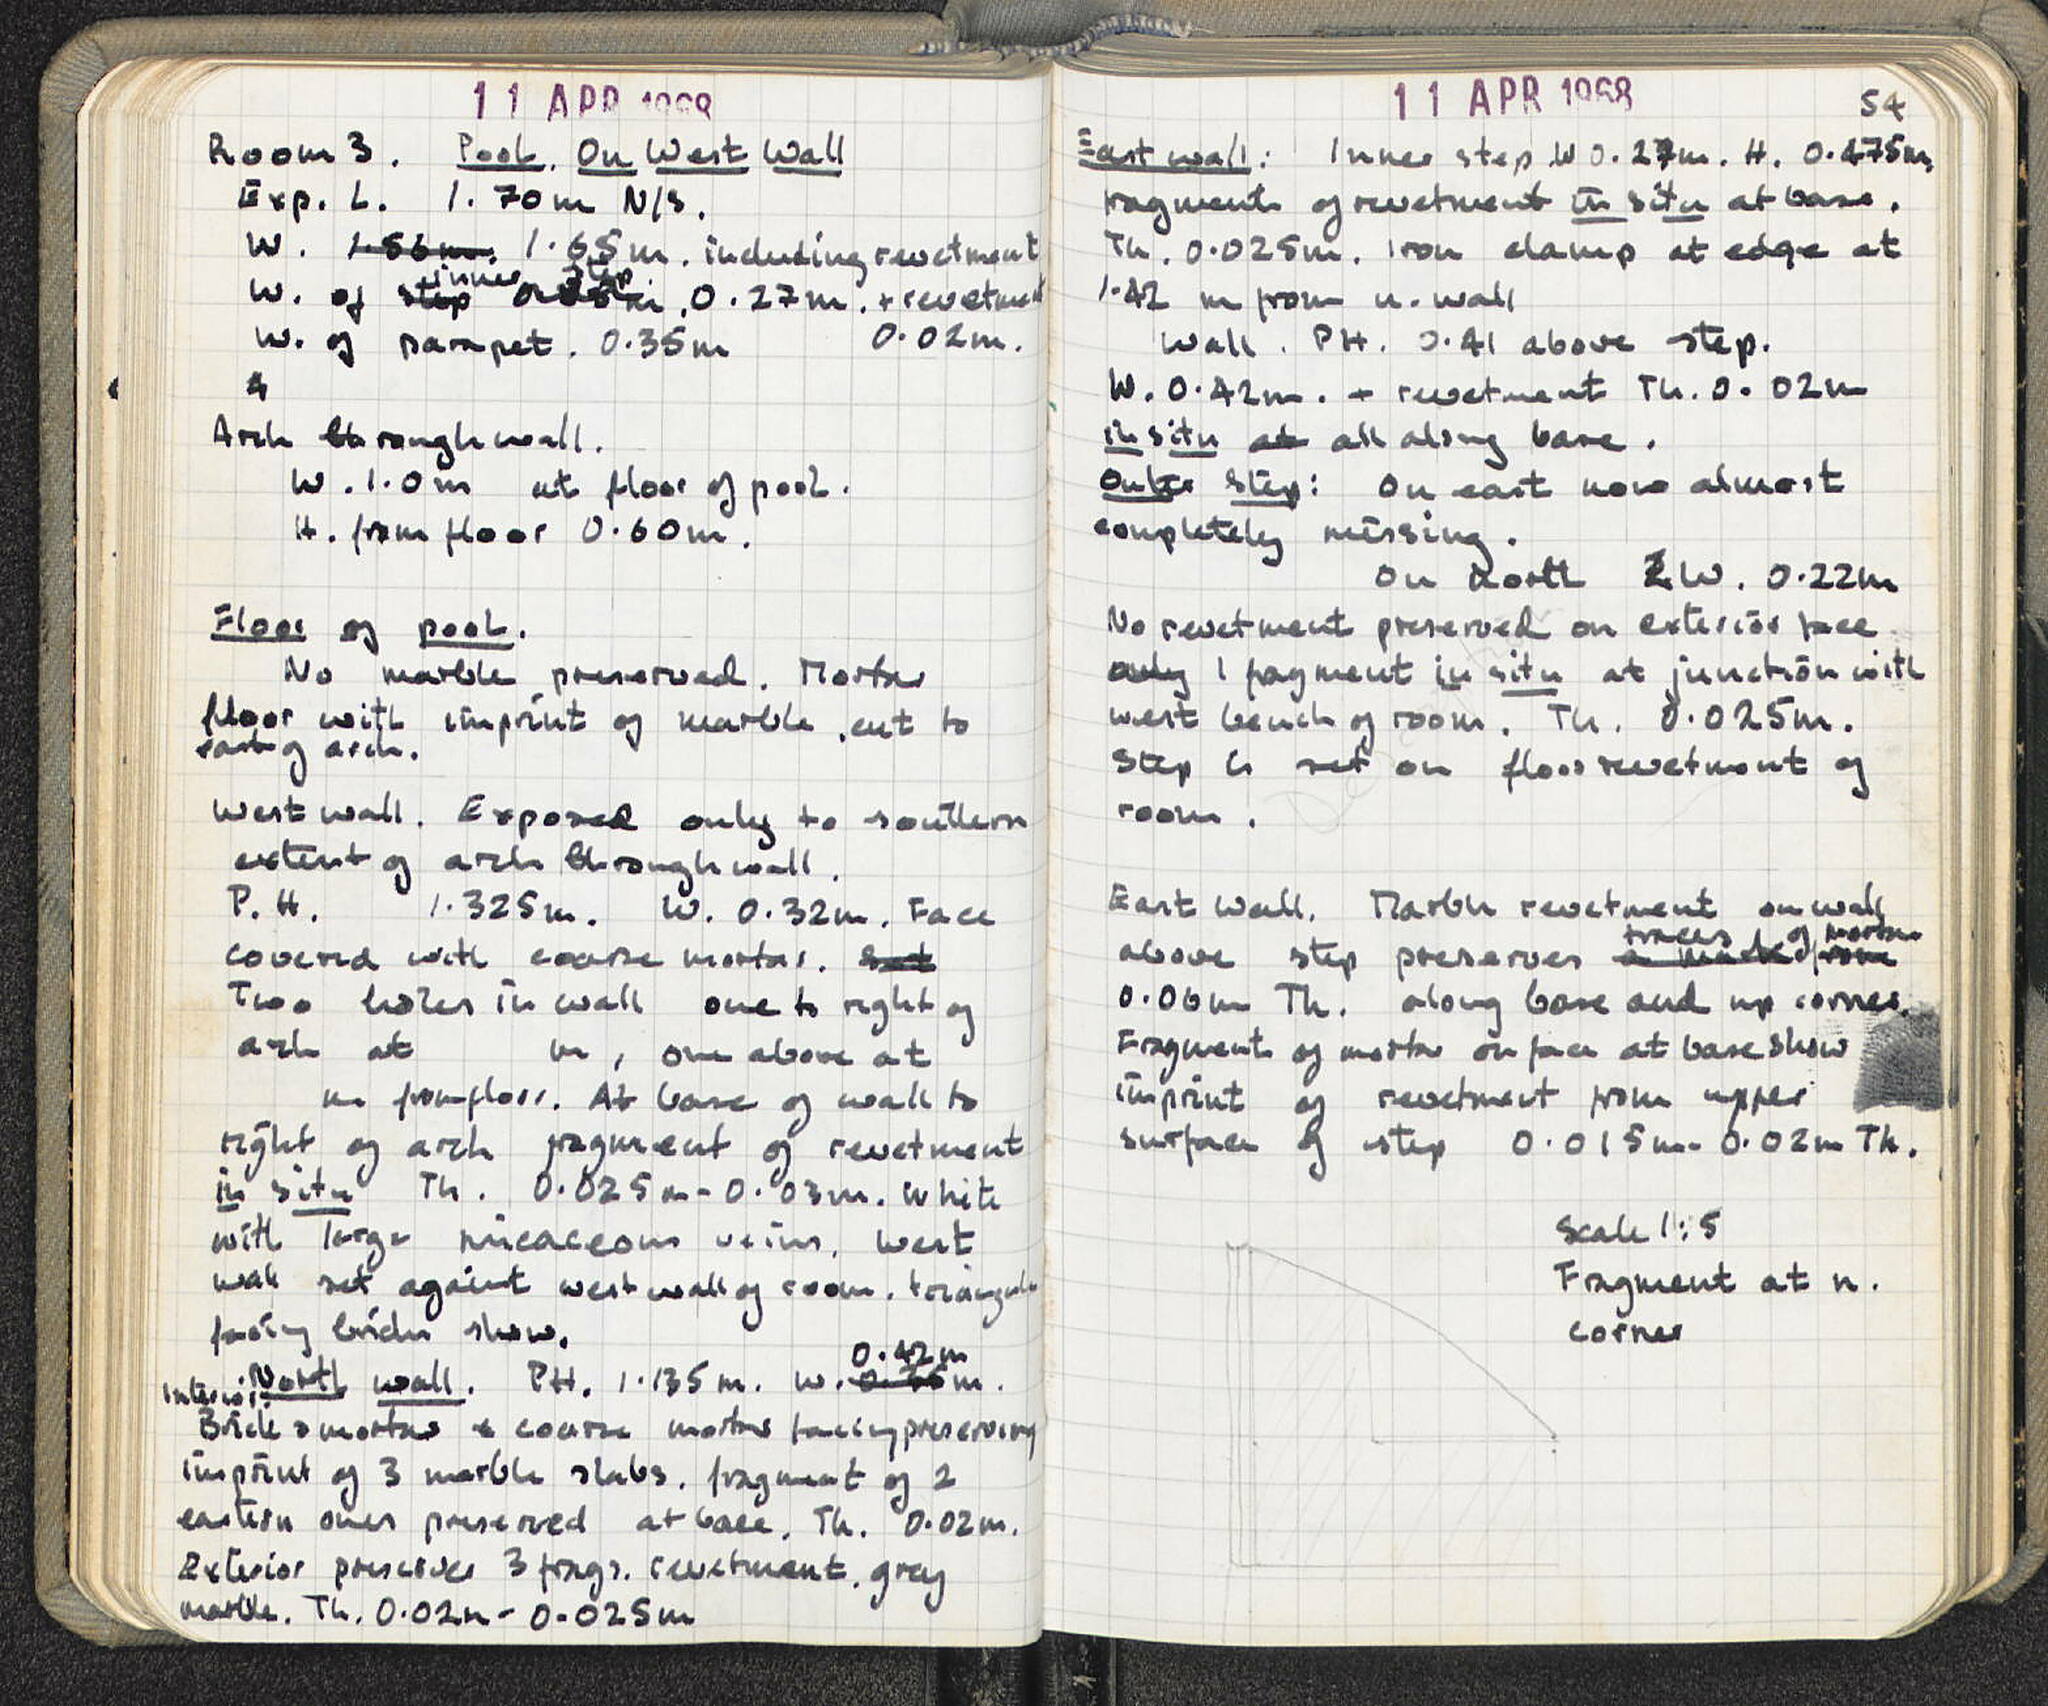 11 APR 1968
Room 3. Pool. On West Wall
Exp. L. 1.70m N/S.
W. 1.56m. 1.65m. including revetment
inner step
W. of step 0.27m. + revetment
W. of parapet. 0.35m 0.02m.
Arch through wall.
W. 1.0m at floor of pool.
H. from floor 0.60m.
Floor of pool.
No marble preserved. Mortar
floor with imprint of marble, cut to
east of arch.
West wall. Exposed only to southern
extent of arch through wall.
P.H. 1.325m. W. 0.32m. Face
covered with coarse mortar. Set
Two holes in wall one to right of
arch at m, one above at
m from floor. At base of wall to
right of arch fragment of revetment
in situ Th. 0.025m - 0.03m. White
with large micaceous veins. West
wall set against west wall of room. triangular
facing bricks show.
0.42m
North wall. PH. 1.135m. W. 0.35m.
Interior:
Brick & mortar & coarse mortar facing preserving
imprint of 3 marble slabs. fragment of 2
eastern ones preserved at base. Th. 0.02m.
Exterior preserves 3 frags. revetment. grey
marble. Th. 0.02m - 0.025m
11 APR 1968
54
East wall: Inner step W 0.27m. H. 0.475m.
fragments of revetment in situ at base.
Th. 0.025m. Iron clamp at edge at
1.42 m from n. wall
Wall. PH. 0.41 above step.
W. 0.42m. + revetment Th. 0.02m
in situ at all along base.
Outer Step: On east now almost
completely missing.
On north W. 0.22m
No revetment preserved on exterior face
only 1 fragment in situ at junction with
west bench of room. Th. 0.025m.
Step is set on floor revetment of
room.
East Wall. Marble revetment on wall
traces of mortar
above step preserves a mark from
0.06m Th. along base and up corner.
Fragments of mortar on face at base show
imprint of revetment from upper
surface of step 0.015m - 0.02m Th.
Scale 1:5
Fragment at n.
corner